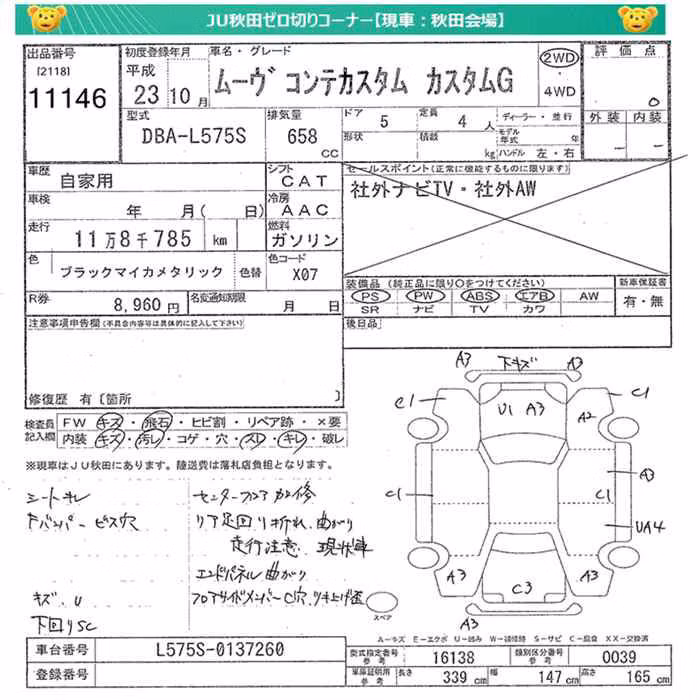 JU秋田ゼロ切りコーナー【現車：秋田会場】
出品番号 [2118] 11146
初度登録年月 平成 23 10月
車名・グレード ムーヴ コンテカスタム カスタムG
2WD ・ 4WD
評価点 0
外装 － 内装 －
型式 DBA-L575S
排気量 658 CC
ドア 5 形状
定員 4人 積載 kg
ディーラー・並行 モデル年式 年 ハンドル 左・右
車歴 自家用
シフト CAT
セールスポイント(正常に機能するものに限ります)
社外ナビTV・社外AW
車検 年 月( 日)
冷房 AAC
走行 11万8千785 km
燃料 ガソリン
色 ブラックマイカメタリック 色替
色コード X07
装備品 (純正品に限り○をつけてください)
PS ・ PW ・ ABS ・ エアB ・ AW
SR ナビ TV カワ
新車保証書 有・無
R券 8,960円
名変通知期限 月 日
後日品
注意事項申告欄(不具合内容等は具体的に記入して下さい)
修復歴 有〔箇所 〕
検査員記入欄
FW キズ・飛石・ヒビ割・リペア跡・×要
内装 キズ・汚レ・コゲ・穴・スレ・キレ・破レ
※現車はJU秋田にあります。陸送費は落札店負担となります。
シートキレ
Fバンパービス穴
キズ．U
下回りSC
センターフロア加修
リア足回り折れ、曲がり
走行注意 現状車
エンドパネル曲がり
フロアサイドメンバーC穴
A3 下キズ A3
C1 U1 A3 A2 C1
C1 C1 A3
UA4
A3 C3 A3
A3
スペア
A－キズ E－エクボ U－凹み W－補修跡 S－サビ C－腐食 XX－交換済
車台番号 L575S-0137260
登録番号
型式指定番号 参考 16138
類別区分番号 参考 0039
車庫証明用 参考 長さ 339 cm 幅 147 cm 高さ 165 cm